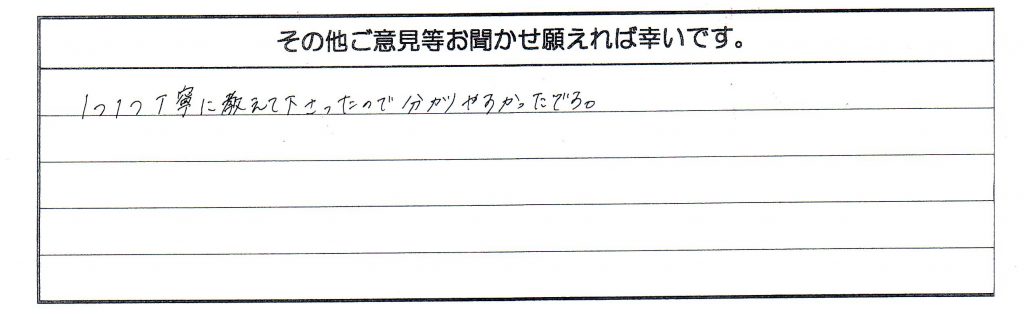 その他ご意見等お聞かせ願えれば幸いです。
1つ1つ丁寧に教えて下さったので分かりやすかったです。